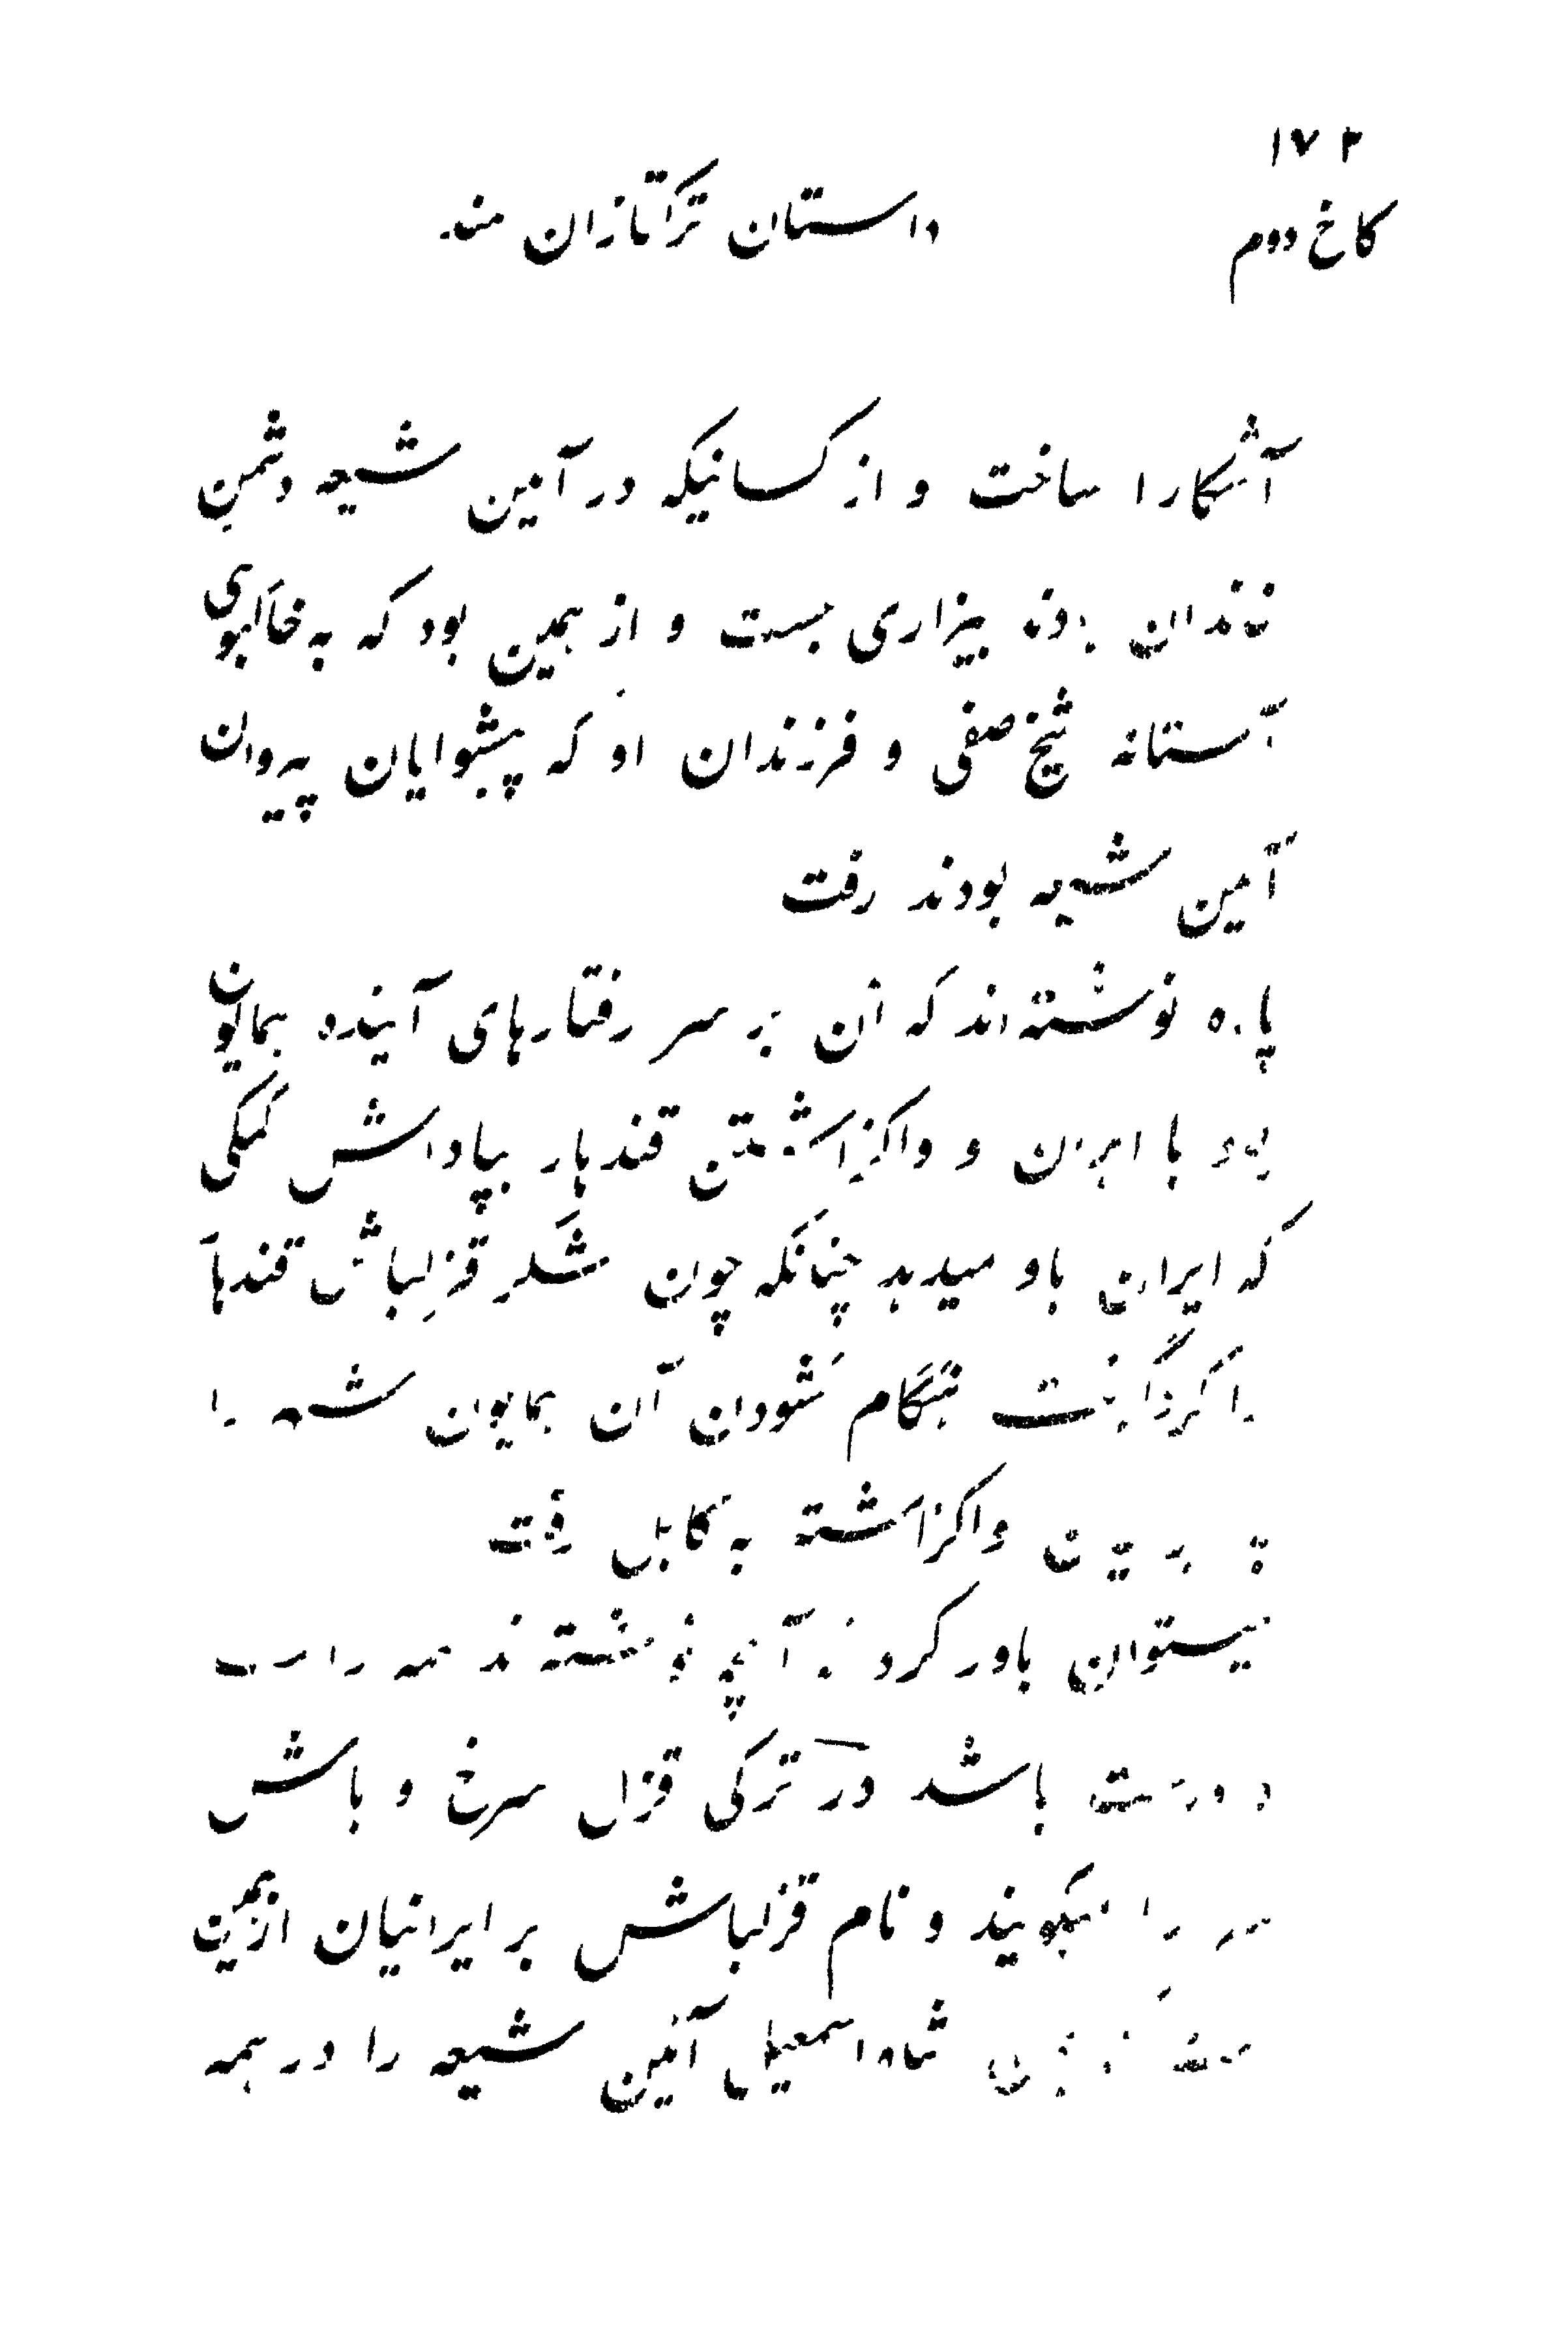 ۱۷۲
کاخ دوم داستان ترکتازان هند
آشکارا ساخت و از کسانیکه در آئین شیعه دشمن
خاندان بوده بیزاری جست و از همین بود که به خاکبوی
آستانه شیخ صفی و فرزندان او که پیشوایان پیروان
آئین شیعه بودند رفت
پاره نوشته‌اند که آن بر سر رفتارهای آینده همایون
بود با ایران و واگزاشتن قندهار بپاداش کمکی
که ایران باو میدهد چنانکه چون لشکر قزلباش قندهار
هنگام شودن آن همایون شیعه را
واگزاشته به کابل رفت
نمیتوان باور کرد که آنچه نوشته‌اند همه راست
و درست باشد در ترکی قزل سرخ و باش
سر را میگویند و نام قزلباش بر ایرانیان ازهمین
شاه اسمعیل آئین شیعه را در همه